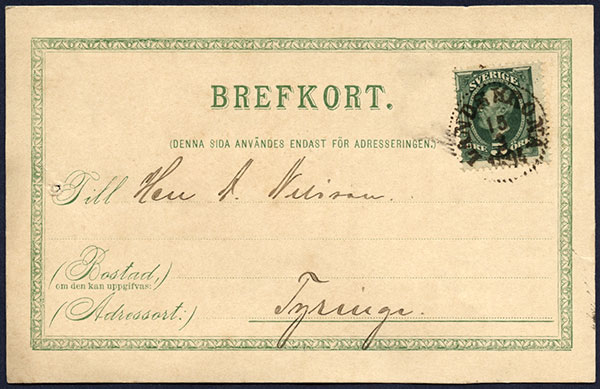 SVERIGE
15
5
ÖRE ÖRE
BREFKORT.
(DENNA SIDA ANVÄNDES ENDAST FÖR ADRESSERINGEN.)
Till Herr A. Nilsson.
(Bostad,)
om den kan uppgifvas:
(Adressort:)
Tyringe.